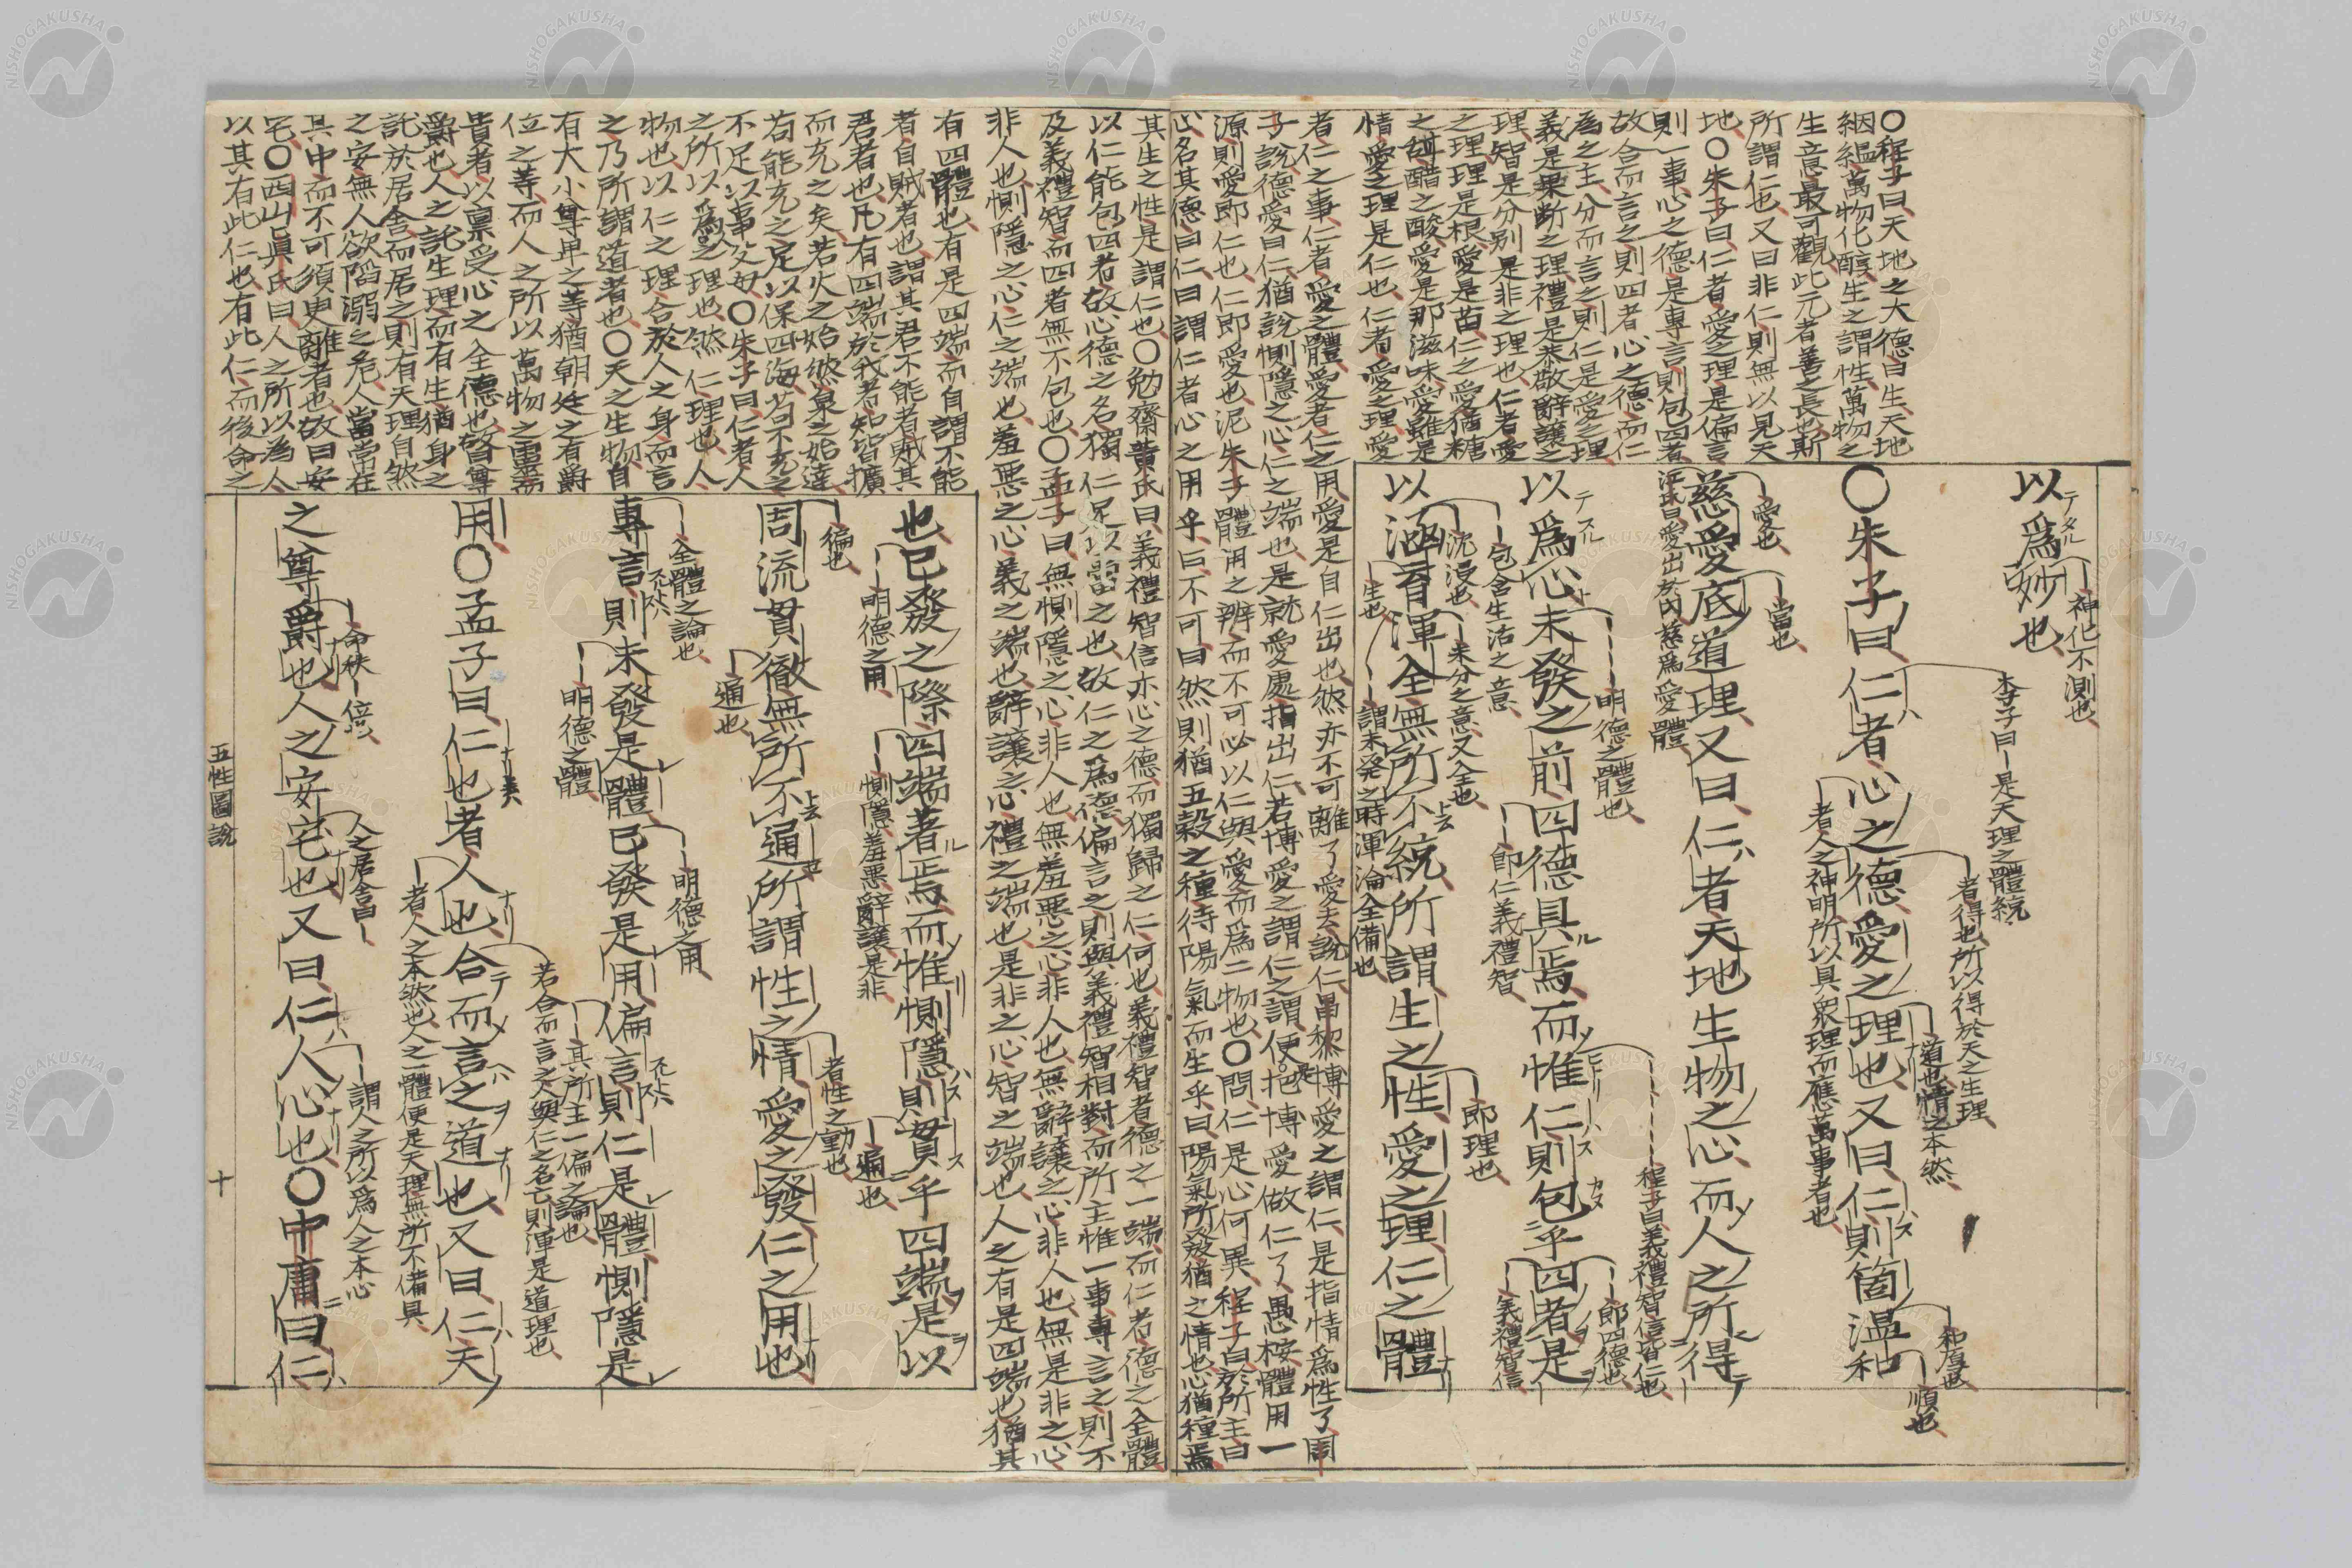 〇程子曰天地之大德曰生天地
絪縕萬物化醇生之謂性萬物之
生意最可觀此元者善之長也斯
所謂仁也又曰非仁則無以見天
地〇朱子曰仁者愛之理是偏言
則一事心之德是專言則包四者
故合而言之則四者心之德而仁
為之主分而言之則仁是愛之理
義是果斷之理禮是恭敬辭讓之
理智是分別是非之理也仁者愛
之理理是根愛是苗仁之愛猶糖
之甜醋之酸愛是那滋味愛雖是
情愛之理是仁也仁者愛之理愛
者仁之事仁者愛之體愛者仁之用愛是自仁出也然亦不可離了愛去說仁昌黎博愛之謂仁是指情爲性了周
子說德愛曰仁猶說惻隱之心仁之端也是就愛處指出仁若博愛之謂仁之謂便是把博愛做仁了愚桉體用一
源則愛即仁也仁即愛也泥朱子體用之辨而不可必以仁與愛而爲二物也〇問仁是心何異程子曰於所主曰
心名其德曰仁曰謂仁者心之用乎曰不可曰然則猶五穀之種待陽氣而生乎曰陽氣所發猶之情也心猶種焉
以爲妙也
神化不測也
〇朱子曰仁者心之德愛之理也又曰仁則箇溫和
朱子曰是天理之體統
者得也所以得於天之生理
者人之神明所以具衆理而應萬事者也
道也情之本然
和厚也
順也
慈愛底道理又曰仁者天地生物之心而人之所得
愛也
當也
江氏曰愛出於內慈爲愛體
以爲心未發之前四德具焉而惟仁則包乎四者是
明德之體也
程子曰義禮智信皆仁也
包含生活之意
即仁義禮智
即四德也
義禮智信
以涵育渾全無所不統所謂生之性愛之理仁之體
沈浸也
未分之意又全也
生也
謂未発之時渾淪全備也
即理也
其生之性是謂仁也〇勉齋黃氏曰義禮智信亦心之德而獨歸之仁何也義禮智者德之一端而仁者德之全體
以仁能包四者故心德之名獨仁足以當之也故仁之爲德偏言之則與義禮智相對而所主惟一事專言之則不
及義禮智而四者無不包也〇孟子曰無惻隱之心非人也無羞惡之心非人也無辭讓之心非人也無是非之心
非人也惻隱之心仁之端也羞惡之心義之端也辭讓之心禮之端也是非之心智之端也人之有是四端也猶其
有四體也有是四端而自謂不能
者自賊者也謂其君不能者賊其
君者也凡有四端於我者知皆擴
而充之矣若火之始然泉之始達
苟能充之足以保四海苟不充之
不足以事父母〇朱子曰仁者人
之所以爲之理也然仁理也人
物也以仁之理合於人之身而言
之乃所謂道者也〇天之生物自
有大小尊卑之等猶朝廷之有爵
位之等而人之所以萬物之靈而
貴者以禀受心之全德也故曰尊
爵也人之託生理而有生猶身之
託於居舍而居之則有天理自然
之安無人欲陷溺之危人當常在
其中而不可須臾離者也故曰安
宅〇西山眞氏曰人之所以為人
以其有此仁也有此仁而後命之
也已發之際四端著焉而惟惻隱則貫乎四端是以
明德之用
惻隱羞惡辭讓是非
遍也
周流貫徹無所不通所謂性之情愛之發仁之用也
徧也
通也
者性之動也
專言則未發是體已發是用偏言則仁是體惻隱是
全體之論也
明德之體
明德之用
其所主一偏之論也
用〇孟子曰仁也者人也合而言之道也又曰仁天
者人之本然也人之一體便是天理無所不備具
若合而言之人與仁之名亡則渾是道理也
之尊爵也人之安宅也又曰仁人心也〇中庸曰仁
人之居舍曰
謂人之所以爲人之本心
五性圖說
十